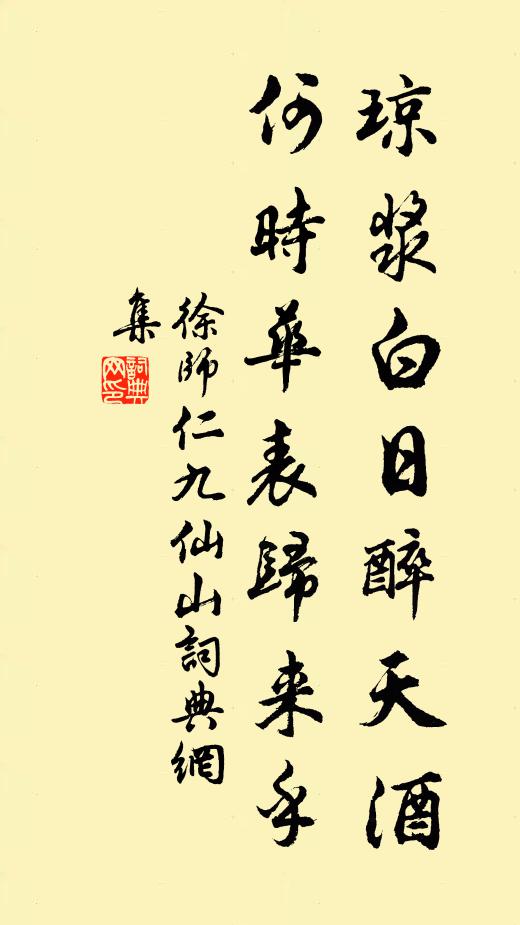 琼漿白日醉天酒
何時華表歸来乎
徐師仁九仙山詞典網
集
詞典
网印